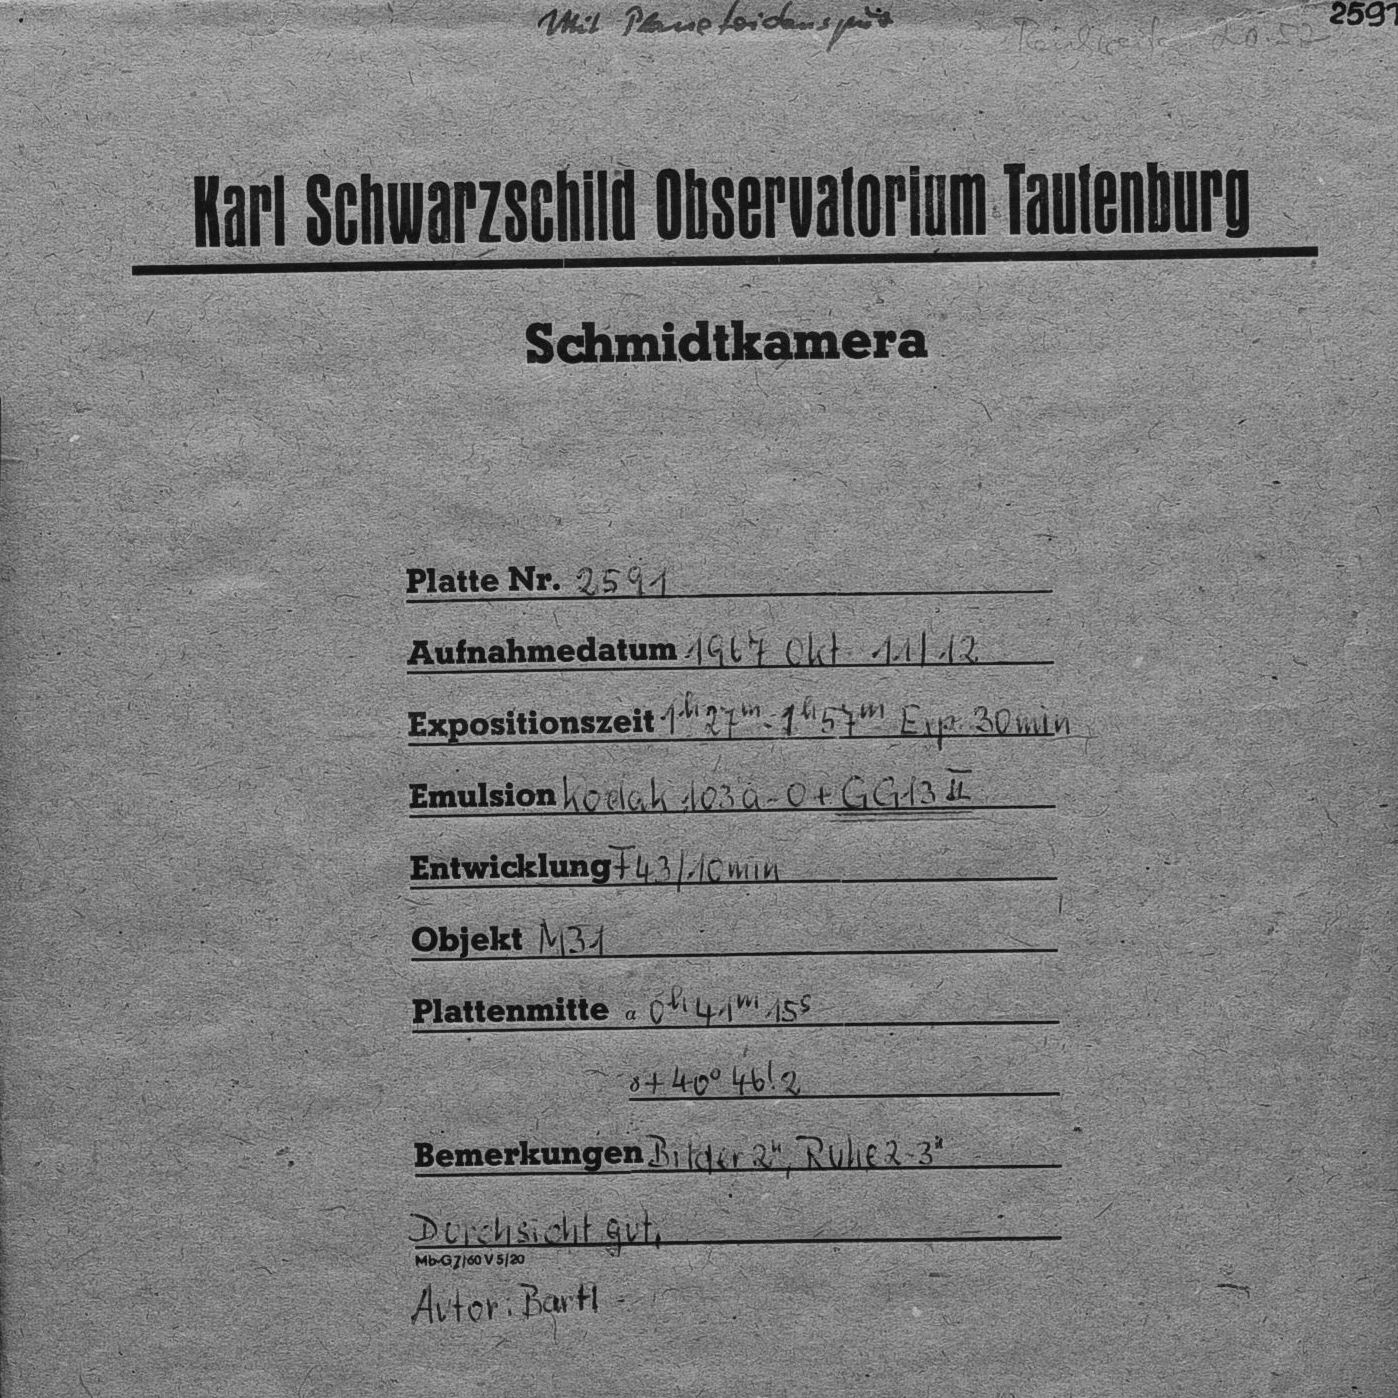 Mit Planetoidenspur
2591
Karl Schwarzschild Observatorium Tautenburg
Schmidtkamera
Platte Nr. 2591
Aufnahmedatum 1967 Okt 11/12
Expositionszeit 1h27m-1h57m Exp. 30min
Emulsion Kodak 103a-O+GG13 II
Entwicklung F43/10min
Objekt M31
Plattenmitte α 0h 41m 15s
δ+40° 46!2
Bemerkungen Bilder 2", Ruhe 2-3"
Durchsicht gut,
Mb-G 7/60 V 5/20
Autor: Bartl